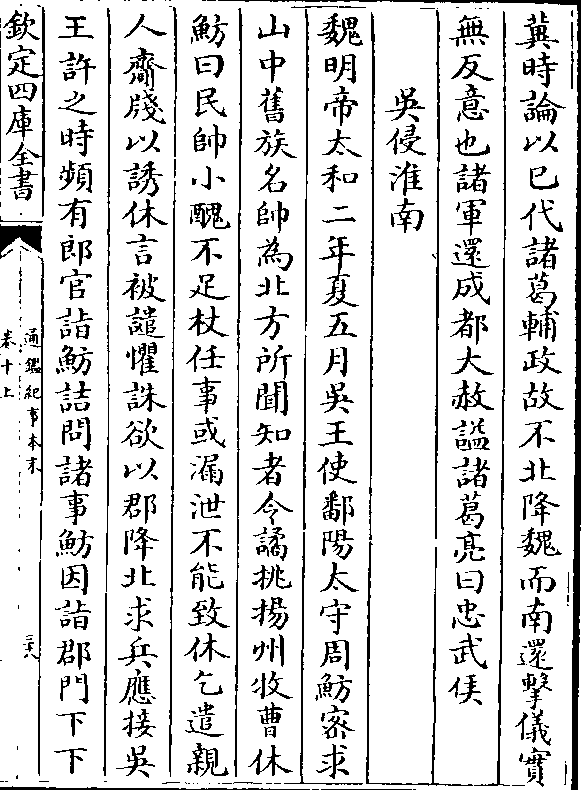 冀時論以已代諸葛輔政故不北降魏而南還擊儀實
無反意也諸軍還成都大赦諡諸葛亮曰忠武侯
吳侵淮南
魏明帝太和二年夏五月吳王使鄱陽太守周魴密求
山中舊族名帥為北方所聞知者令譎挑揚州牧曹休
魴曰民帥小醜不足杖任事或漏泄不能致休乞遣親
人齎牋以誘休言被譴懼誅欲以郡降北求兵應接吳
王許之時頻有郎官詣魴詰問諸事魴因詣郡門下下
欽定四庫全書
通鑑紀事本末
卷十上
三六